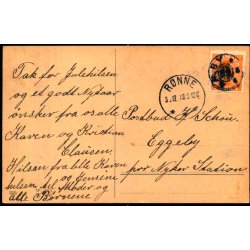 Tak for Julehilsen
og et godt Nytaar
ønsker fra os alle
Karen og Kristian
Clausen.
Hilsen fra lille Karen
og Jensine
hilsen til Moder og
alle Børnene
RØNNE
Postbud H. Schou.
Eggeby
por Nyker Station